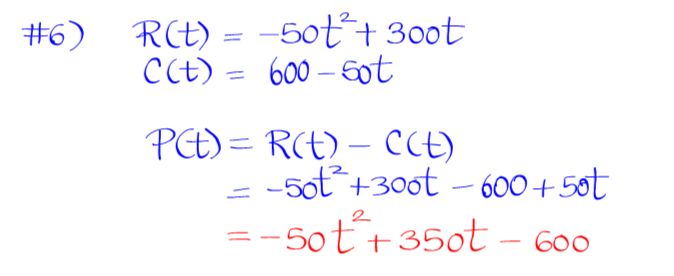 #6) R(t) = -50t²+ 300t
C(t) = 600 - 50t
P(t) = R(t) - C(t)
= -50t²+300t - 600 + 50t
= -50t²+350t - 600